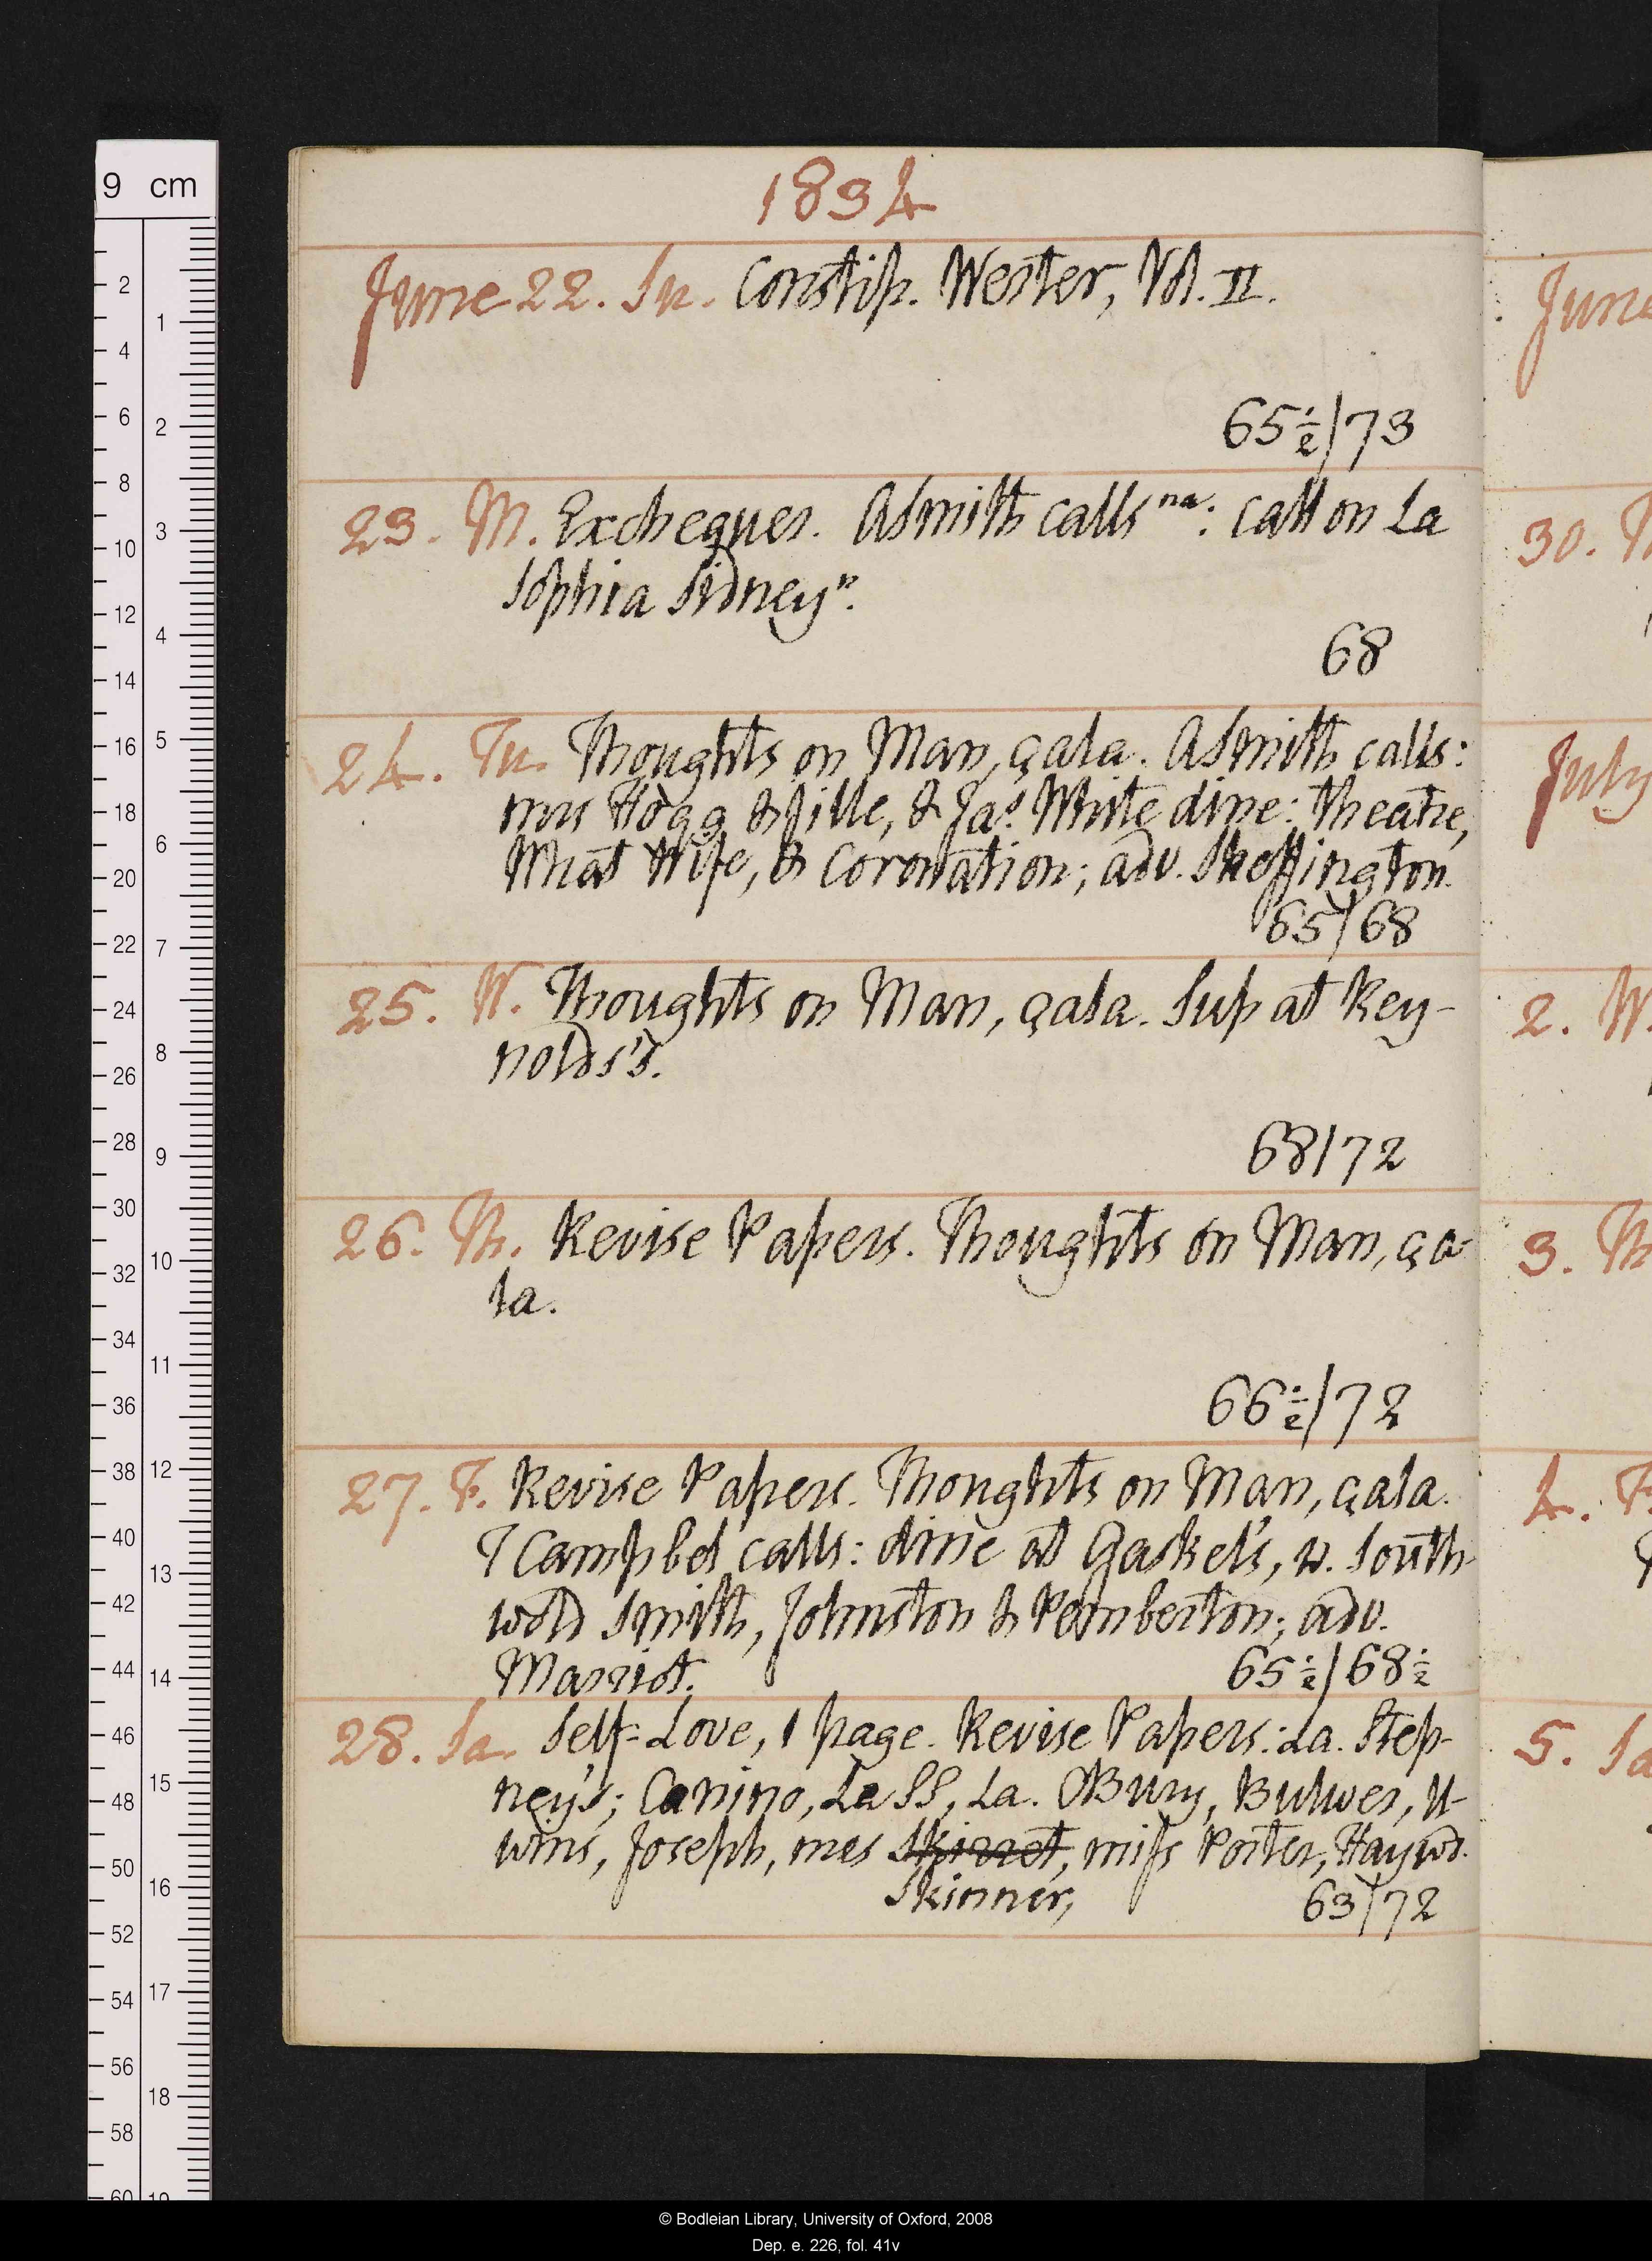 1834
June 22. Su. Constip. Wester, Vol. II.
65½/73
23. M. Exchequer. ASmith calls ⁿᵃ: call on La
Sophia Sidney ⁿ.
68
24. Tu. Thoughts on Man, çala. ASmith calls:
mrs Hogg & fille, & Jas. White dine: theatre,
What Wife, & Coronation; adv. Skeffington.
65/68
25. W. Thoughts on Man, çala. Sup at Rey-
nolds's.
68/72
26. Th. Revise Papers. Thoughts on Man, ça-
la.
66½/72
27. F. Revise Papers. Thoughts on Man, çala.
T Campbel calls: dine at Gaskel's, w. South-
wold Smith, Johnston & Pemberton; adv.
Marriot.
65½/68½
28. Sa. Self-Love, 1 page. Revise Papers: La. Step-
ney's; Canino, La SS, La. CBury, Bulwer, U-
wins, Joseph, mrs Skirret, miss Porter, Haywd.
Skinner,
63/72
June
30. M
July
2. W.
3. Th
4. F
5. Sa
9 cm
2
4
6
8
10
12
14
16
18
20
22
24
26
28
30
32
34
36
38
40
42
44
46
48
50
52
54
56
58
60
1
2
3
4
5
6
7
8
9
10
11
12
13
14
15
16
17
18
19
© Bodleian Library, University of Oxford, 2008
Dep. e. 226, fol. 41v